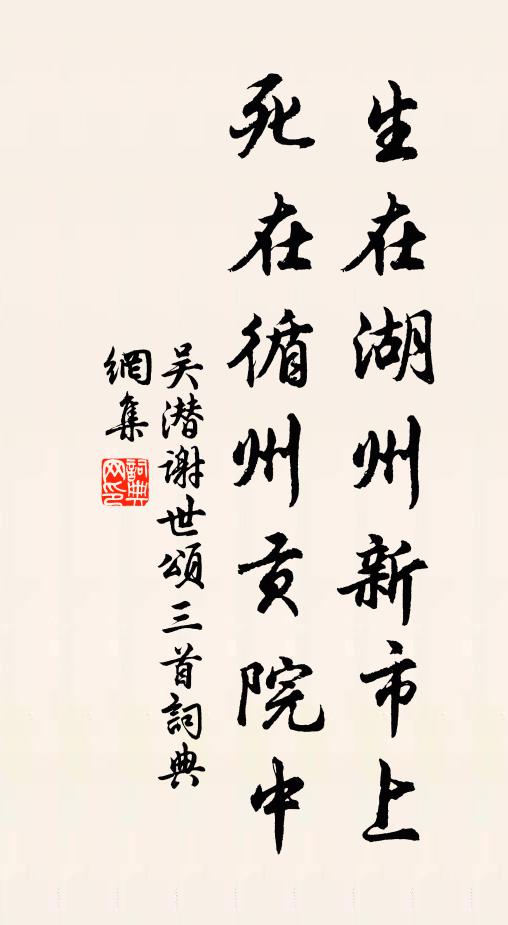 生在湖州新市上
死在循州贡院中
吴潜谢世頌三首詞典
網集
詞典
网印